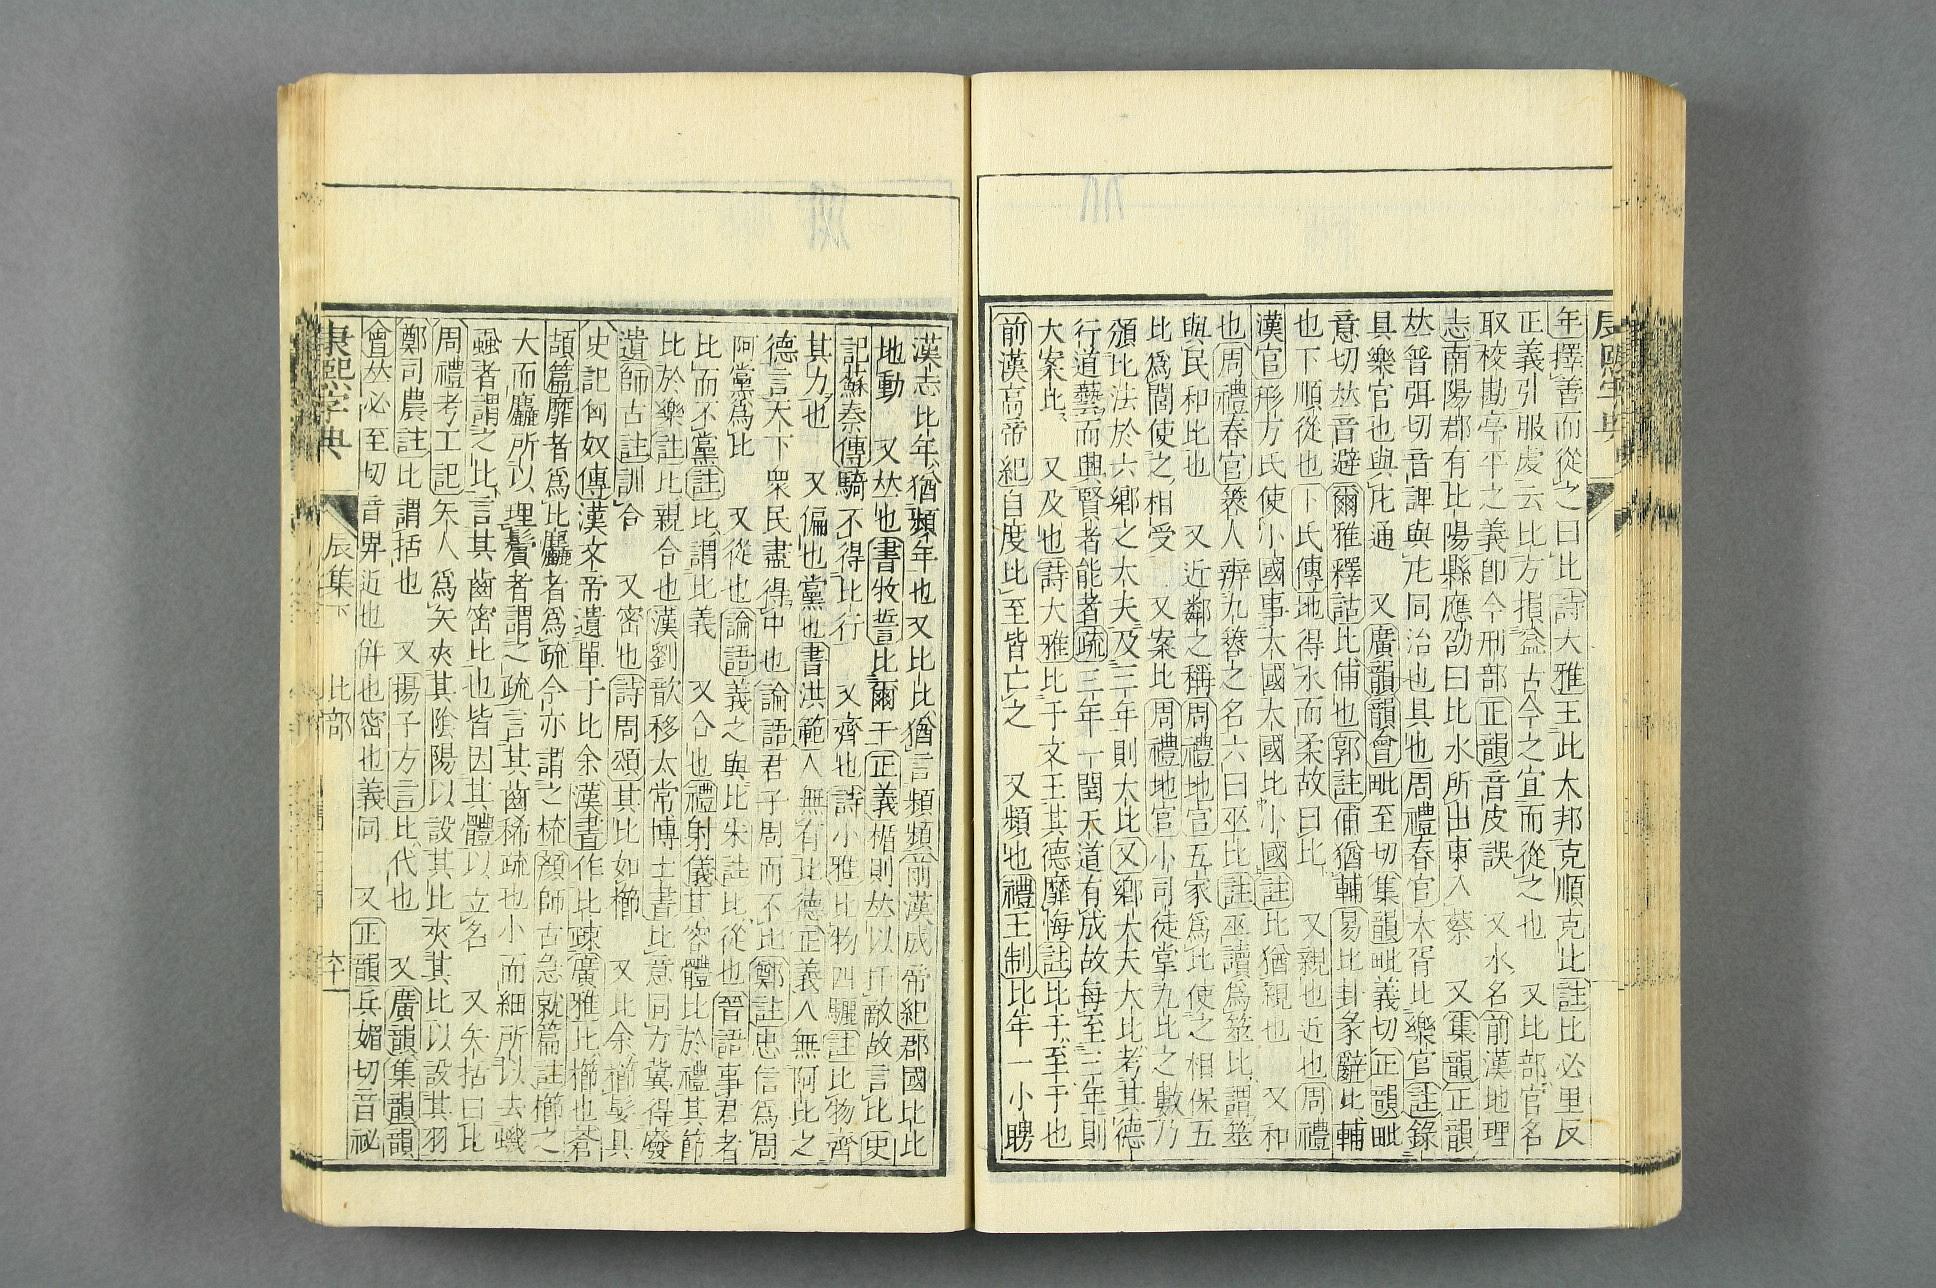 康熙字典
年擇善而從之曰比詩大雅王此大邦克順克比註比必里反
正義引服虔云比方損益古今之宜而從之也 又比部官名
取校勘亭平之義卽今刑部正韻音皮誤 又水名前漢地理
志南陽郡有比陽縣應劭曰比水所出東入蔡 又集韻正韻
𠀤普弭切音諀與庀同治也具也周禮春官大胥比樂官註錄
具樂官也與庀通 又廣韻韻會毗至切集韻毗義切正韻毗
意切𠀤音避爾雅釋詁比俌也郭註俌猶輔易比卦彖辭比輔
也下順從也卞氏傳地得水而柔故曰比 又親也近也周禮
漢官形方氏使小國事大國大國比小國註比猶親也 又和
也周禮春官簭人辨九簭之名六曰巫比註巫讀爲筮比謂筮
與民和比也 又近鄰之稱周禮地官五家爲比使之相保五
比爲閭使之相受 又案比周禮地官小司徒掌九比之數乃
頒比法於六鄉之大夫及三年則大比又鄉大夫大比考其德
行道藝而興賢者能者疏三年一閏天道有成故每至三年則
大案比 又及也詩大雅比于文王其德靡悔註比于至于也
前漢高帝紀自度比至皆亡之 又頻也禮王制比年一小聘
漢志比年猶頻年也又比比猶言頻頻前漢成帝紀郡國比比
地動 又𠀤也書牧誓比爾干正義楯則𠀤以扞敵故言比史
記蘇秦傳騎不得比行 又齊也詩小雅比物四驪註比物齊
其力也 又偏也黨也書洪範人無有比德正義人無阿比之
德言天下眾民盡得中也論語君子周而不比鄭註忠信爲周
阿黨爲比 又從也論語義之與比朱註比從也晉語事君者
比而不黨註比謂比義 又合也禮射儀其容體比於禮其節
比於樂註比親合也漢劉歆移太常博士書比意同力冀得廢
遺師古註訓合 又密也詩周頌其比如櫛 又比余櫛髮具
史記匈奴傳漢文帝遺單于比余漢書作比疎廣雅比櫛也蒼
頡篇靡者爲比麤者爲疏今亦謂之梳顏師古急就篇註櫛之
大而麤所以理鬢者謂之疏言其齒稀疏也小而細所以去蟣
蝨者謂之比言其齒密比也皆因其體以立名 又矢括曰比
周禮考工記矢人爲矢夾其陰陽以設其比夾其比以設其羽
鄭司農註比謂括也 又揚子方言比代也 又廣韻集韻韻
會𠀤必至切音畀近也倂也密也義同 又正韻兵媚切音祕
康熙字典 辰集下 比部 六十一